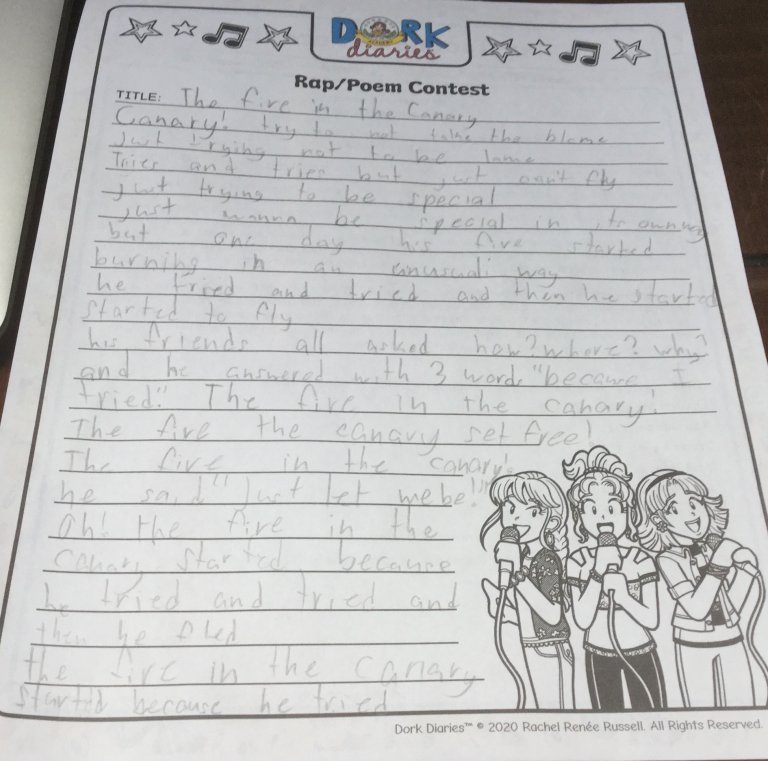 DORK
diaries
Rap/Poem Contest
TITLE: The fire in the Canary
Canary! try to not take the blame
Just trying not to be lame
Tries and tries but just can't fly
just trying to be special
just wanna be special in its own way
but one day his fire started
burning in an unusual way
he tried and tried and then he started
started to fly
his friends all asked how? where? why?
and he answered with 3 words "because I
tried." The fire in the canary!
The fire the canary set free!
The fire in the canary!
he said "Just let me be!"
Oh! the fire in the
canary started because
he tried and tried and
then he fled
the fire in the canary
started because he tried
Dork Diaries™ © 2020 Rachel Renée Russell. All Rights Reserved.